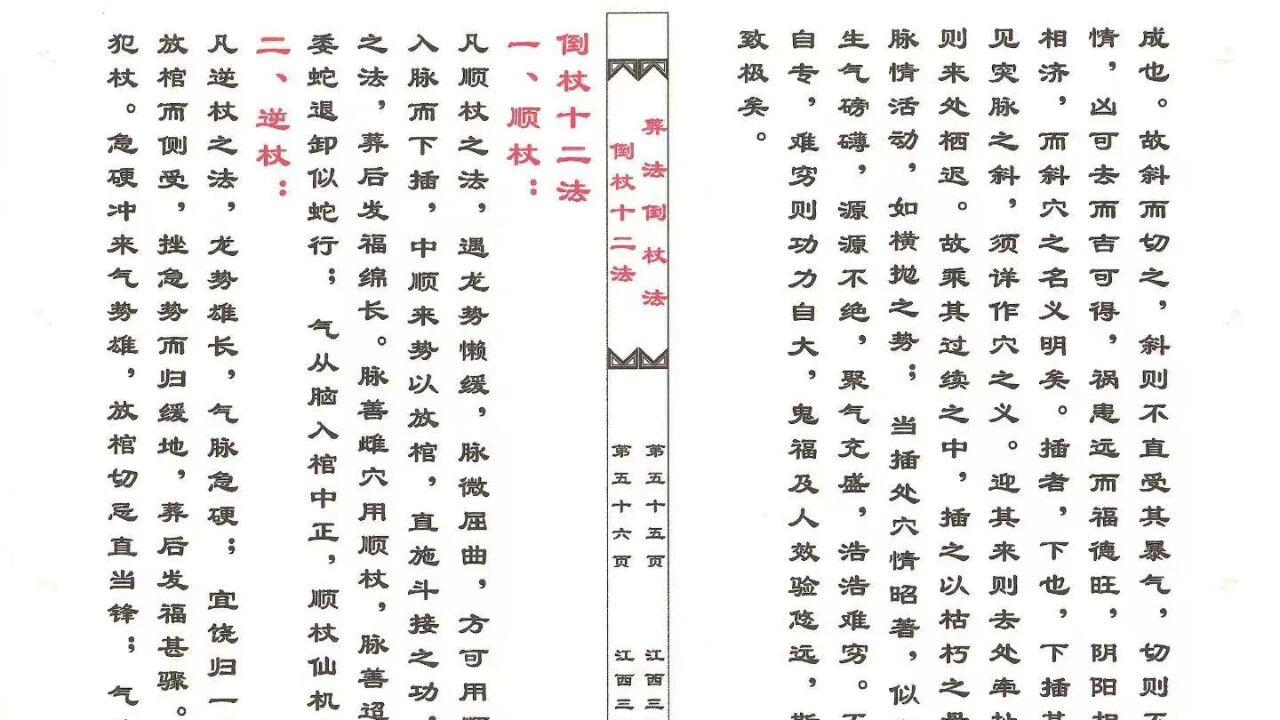 成也。故斜而切之，斜则不直受其暴气，切则
情，凶可去而吉可得，祸患远而福德旺，阴阳
相济，而斜穴之名义明矣。插者，下也，下插
见突脉之斜，须详作穴之义。迎其来则去处牵
则来处栖迟。故乘其过续之中，插之以枯朽之
脉情活动，如横抛之势；当插处穴情昭著，似
生气磅礴，源源不绝，聚气充盛，浩浩难穷。
自专，难穷则功力自大，鬼福及人效验悠远，
致极矣。
葬法倒杖法
倒杖十二法
第五十五页
第五十六页
江西三
江西三
倒杖十二法
一、顺杖：
凡顺杖之法，遇龙势懒缓，脉微屈曲，方可用顺
入脉而下插，中顺来势以放棺，直施斗接之功，
之法，葬后发福绵长。脉善雌穴用顺杖，脉善迢
委蛇退卸似蛇行；气从脑入棺中正，顺杖仙机
二、逆杖：
凡逆杖之法，龙势雄长，气脉急硬；宜饶归一
放棺而侧受，挫急势而归缓地，葬后发福甚骤。
犯杖。急硬冲来气势雄，放棺切忌直当锋；气